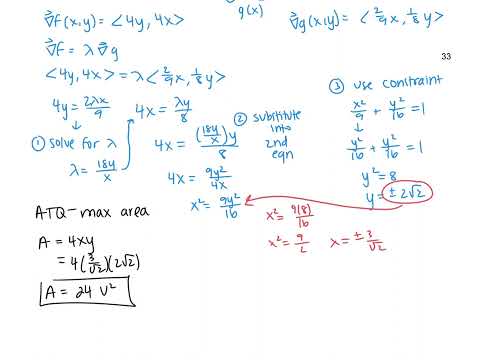 g(x)
∇f(x,y) = ⟨4y, 4x⟩
∇g(x,y) = ⟨2/9 x, 1/8 y⟩
∇f = λ∇g
33
⟨4y, 4x⟩ = λ⟨2/9 x, 1/8 y⟩
4y = 2λx/9
4x = λy/8
① solve for λ
λ = 18y/x
② substitute
into
2nd
eqn
4x = (18y/x)y/8
4x = 9y²/4x
x² = 9y²/16
③ use constraint
x²/9 + y²/16 = 1
y²/16 + y²/16 = 1
y² = 8
y = ±2√2
x² = 9(8)/16
x² = 9/2
x = ±3/√2
ATQ - max area
A = 4xy
= 4(3/√2)(2√2)
A = 24 U²